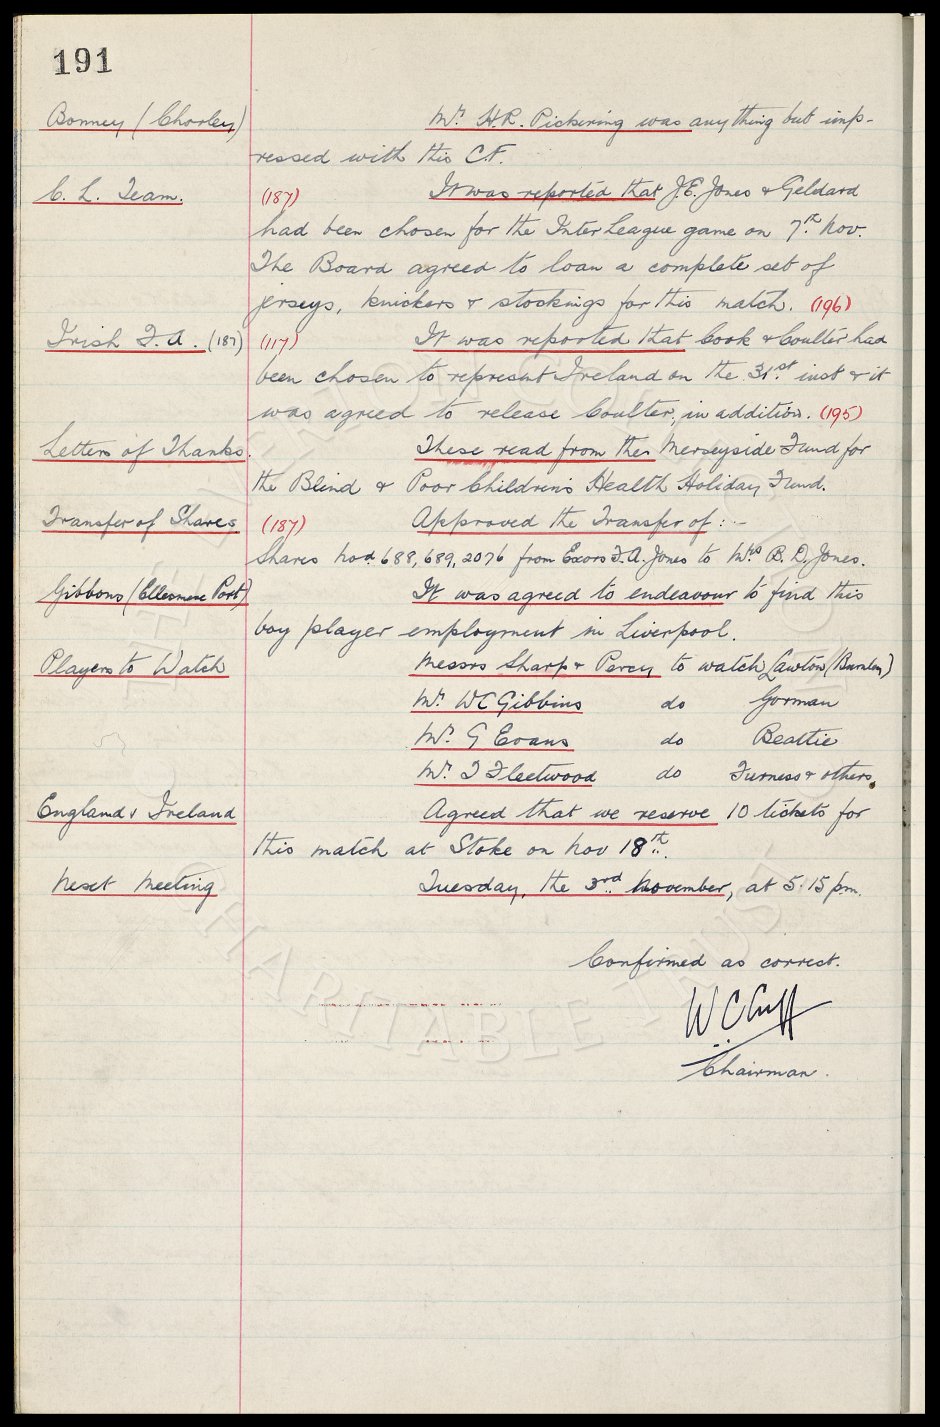 191
Bonney (Chorley) Mr. H.R. Pickering was anything but imp-
ressed with this C.F.
C. L. Team. (187) It was reported that J.E. Jones & Geldard
had been chosen for the Inter League game on 7th Nov.
The Board agreed to loan a complete set of
jerseys, knickers & stockings for this match. (196)
Irish F.A. (187) (117) It was reported that Cook & Coulter had
been chosen to represent Ireland on the 31st inst & it
was agreed to release Coulter, in addition. (195)
Letters of Thanks. These read from the Merseyside Fund for
the Blind & Poor Children's Health Holiday Fund.
Transfer of Shares (187) Approved the Transfer of :-
Shares Nos. 688, 689, 2076 from Exors F.A. Jones to Mrs B. D. Jones.
Gibbons (Ellesmere Port) It was agreed to endeavour to find this
boy player employment in Liverpool.
Players to Watch Messrs Sharp & Percy to watch Lawton (Burnley)
Mr. W C Gibbins do Gorman
Mr. G Evans do Beattie
Mr. T Fleetwood do Furness & others.
England v Ireland Agreed that we reserve 10 tickets for
this match at Stoke on Nov 18th.
Next Meeting Tuesday, the 3rd November, at 5.15 p.m.
Confirmed as correct.
W C Cuff
Chairman.
CHARITABLE TRUST